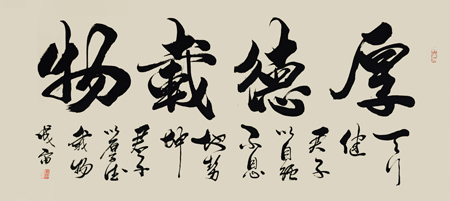 厚德載物
天行
健
君子
以自强
不息
地势
坤
君子
以厚德
載物